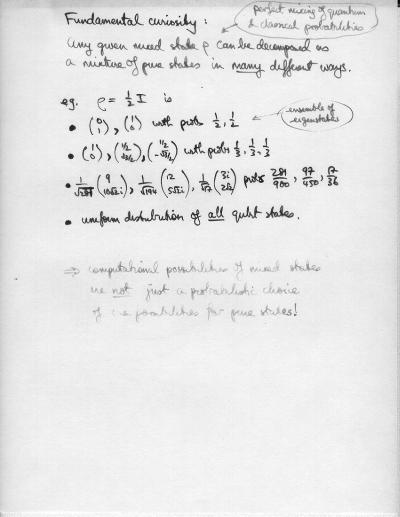 Fundamental curiosity :
perfect mixing of quantum
& classical probabilities
Any given mixed state ρ can be decomposed as
a mixture of pure states in many different ways.
eg. ρ = 1/2 I is
• (0 1), (1 0) with probs 1/2, 1/2
ensemble of
eigenstates
• (1 0), (1/2 √3/2), (1/2 -√3/2) with probs 1/3, 1/3, 1/3
• 1/√281 (9 10√2i), 1/√194 (12 5√2i), 1/√17 (3i 2√2) probs 281/900, 97/450, 17/36
• uniform distribution of all qubit states.
⇒ computational possibilities of mixed states
are not just a probabilistic choice
of possibilities for pure states!